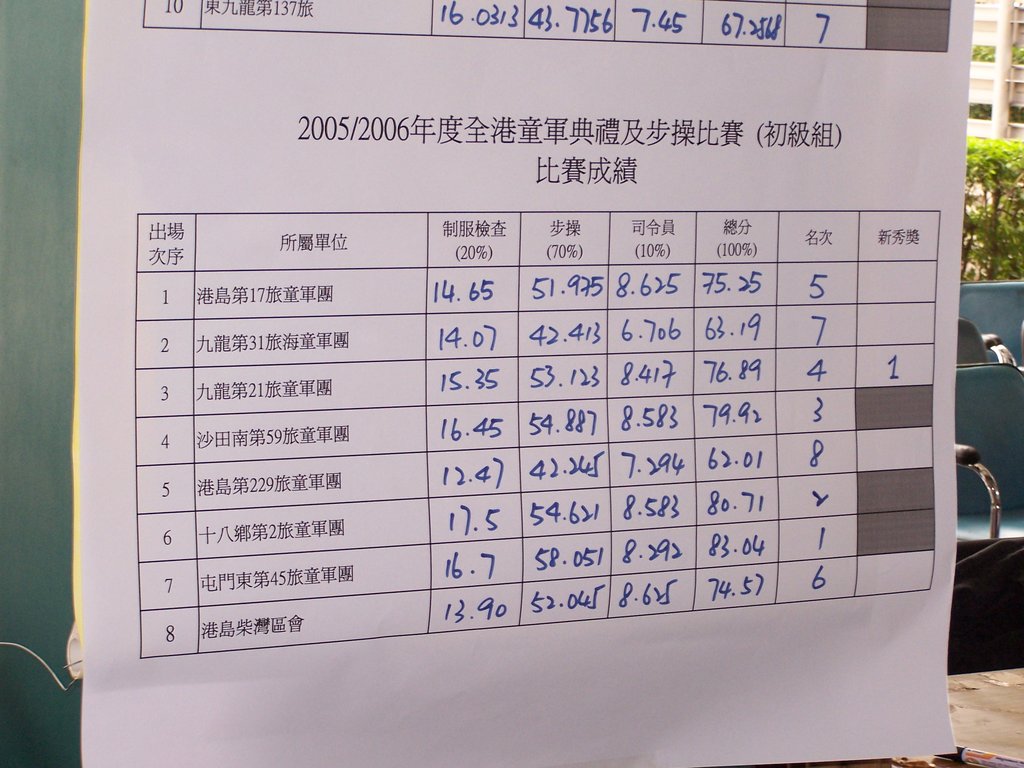 10 東九龍第137旅 16.0313 43.7756 7.45 67.2568 7
2005/2006年度全港童軍典禮及步操比賽 (初級組)
比賽成績
出場次序 所屬單位 制服檢查 (20%) 步操 (70%) 司令員 (10%) 總分 (100%) 名次 新秀獎
1 港島第17旅童軍團 14.65 51.975 8.625 75.25 5
2 九龍第31旅海童軍團 14.07 42.413 6.706 63.19 7
3 九龍第21旅童軍團 15.35 53.123 8.417 76.89 4 1
4 沙田南第59旅童軍團 16.45 54.887 8.583 79.92 3
5 港島第229旅童軍團 12.47 42.245 7.294 62.01 8
6 十八鄉第2旅童軍團 17.5 54.621 8.583 80.71 2
7 屯門東第45旅童軍團 16.7 58.051 8.292 83.04 1
8 港島柴灣區會 13.90 52.045 8.625 74.57 6